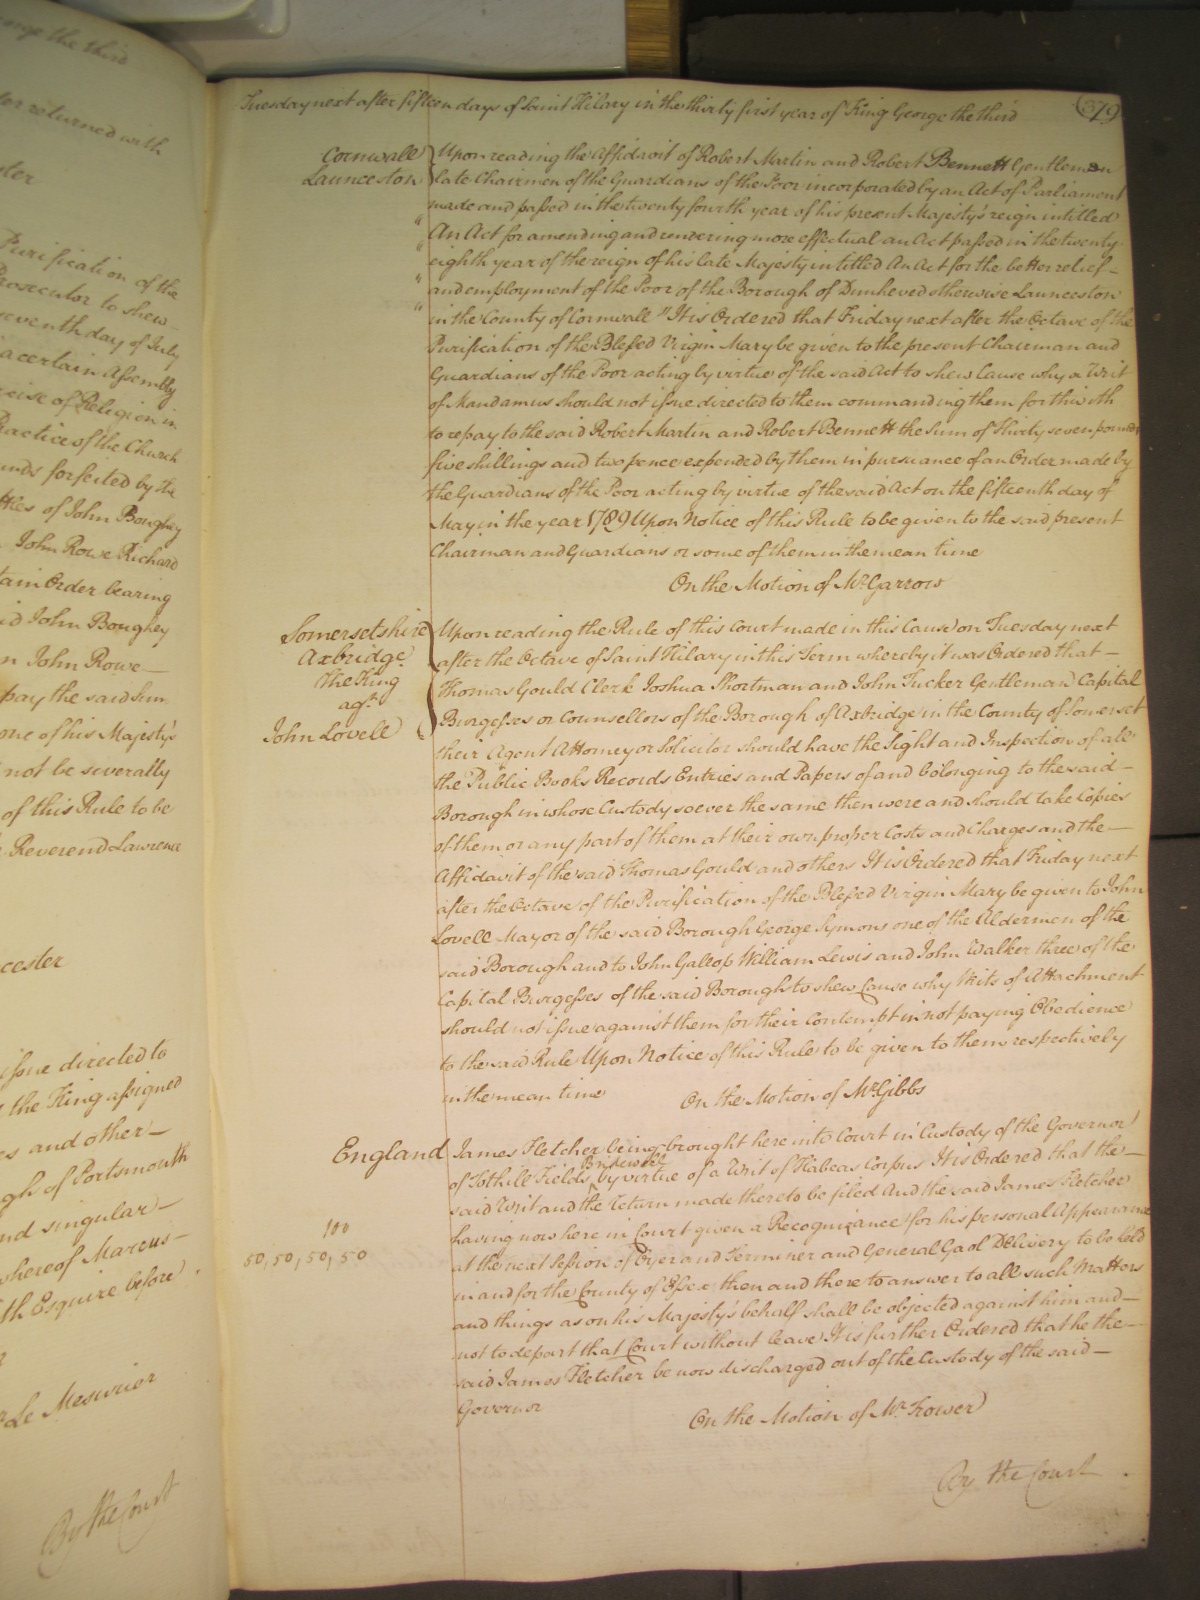 orge the third
ter returned with
ster
Purification of the
Prosecutor to shew
seventh day of July
a certain Assembly
rcise of Religion in
Practice of the Church
unds forfeited by the
ttles of John Boughey
John Rowe Richard
tain Order bearing
id John Boughey
n John Rowe —
pay the said sum
one of his Majesty's
not be severally
of this Rule to be
Reverend Lawrence
cester
issue directed to
the King assigned
es and other —
gh of Portsmouth
nd singular —
whereof Marcus —
th Esquire before
Le Mesurier
By the Court
Tuesday next after fifteen days of Saint Hilary in the thirty first year of King George the third
379
Cornwall
Launceston
Upon reading the Affidavit of Robert Martin and Robert Bennett Gentlemen
late Chairmen of the Guardians of the Poor incorporated by an Act of Parliament
made and passed in the twenty fourth year of his present Majesty's reign intitled
" An Act for amending and rendering more effectual an Act passed in the twenty
" eighth year of the reign of his late Majesty intitled An Act for the better relief —
" and employment of the Poor of the Borough of Dunheved otherwise Launceston
" in the County of Cornwall" It is Ordered that Friday next after the Octave of the
Purification of the Blessed Virgin Mary be given to the present Chairman and
Guardians of the Poor acting by virtue of the said Act to shew Cause why a Writ
of Mandamus should not issue directed to them commanding them forthwith
to repay to the said Robert Martin and Robert Bennett the Sum of Thirty seven pounds
five shillings and two pence expended by them in pursuance of an Order made by
the Guardians of the Poor acting by virtue of the said Act on the fifteenth day of
May in the year 1789 Upon Notice of this Rule to be given to the said present
Chairman and Guardians or some of them in the mean time
On the Motion of Mr. Garrow
Somersetshire
Axbridge
The King
agst.
John Lovell
Upon reading the Rule of this Court made in this Cause on Tuesday next
after the Octave of Saint Hilary in this Term whereby it was Ordered that —
Thomas Gould Clerk Joshua Shortman and John Tucker Gentleman Capital
Burgesses or Counsellors of the Borough of Axbridge in the County of Somerset
their Agent Attorney or Solicitor should have the Sight and Inspection of all
the Public Books Records Entries and Papers of and belonging to the said —
Borough in whose Custody soever the same then were and should take Copies
of them or any part of them at their own proper Costs and Charges and the —
Affidavit of the said Thomas Gould and others It is Ordered that Friday next
after the Octave of the Purification of the Blessed Virgin Mary be given to John
Lovell Mayor of the said Borough George Symons one of the Aldermen of the
said Borough and to John Gallop William Lewis and John Walker three of the
Capital Burgesses of the said Borough to shew Cause why Writs of Attachment
should not issue against them for their Contempt in not paying Obedience
to the said Rule Upon Notice of this Rule to be given to them respectively
in the mean time
On the Motion of Mr. Gibbs
England
100
50, 50, 50, 50
James Fletcher being brought here into Court in Custody of the Governor
of Tothill Fields Bridewell by virtue of a Writ of Habeas Corpus It is Ordered that the —
said Writ and the Return made thereto be filed And the said James Fletcher
having now here in Court given a Recognizance for his personal Appearance
at the next Session of Oyer and Terminer and General Gaol Delivery to be held
in and for the County of Essex then and there to answer to all such Matters
and things as on his Majesty's behalf shall be objected against him and —
not to depart that Court without leave It is further Ordered that he the —
said James Fletcher be now discharged out of the Custody of the said —
Governor
On the Motion of Mr.
By the Court